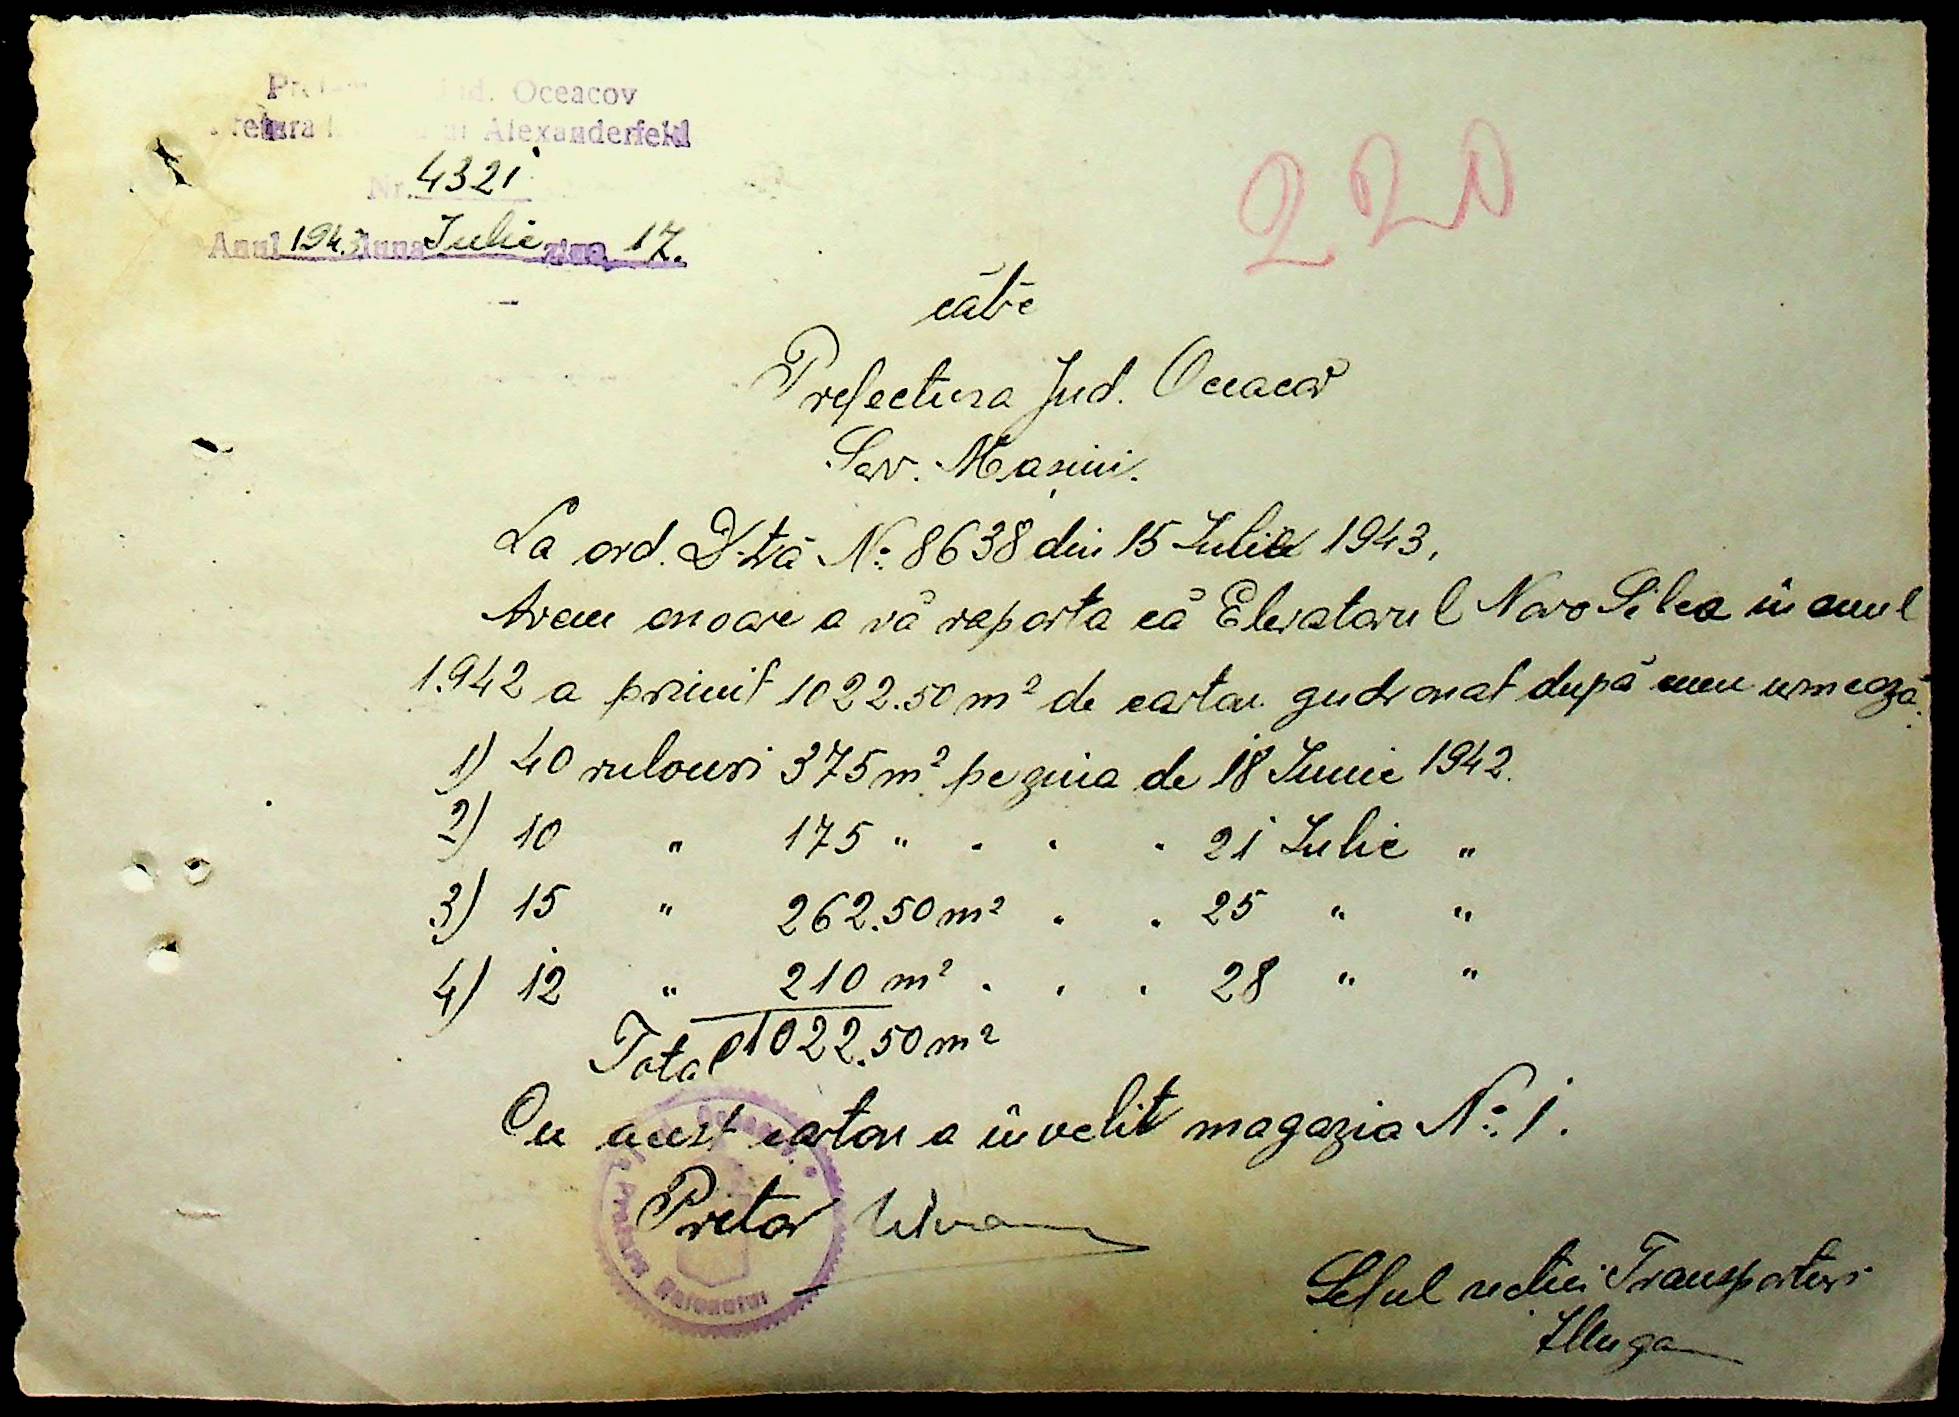 Jud. Oceacov
Pretura Alexanderfeld
Nr. 4321
Anul 1943 luna Iulie ziua 17.
220
cătrē
Prefectura Jud. Oceacov
Serv. Mașini.
La ord. D-tră No: 8638 din 15 Iulie 1943,
Avem onoare a vă raporta că Elevatorul Novo Silca în anul
1942 a primit 1022.50 m² de carton gudronat după cum urmează
1) 40 rulouri 375 m² pe ziua de 18 Iunie 1942.
2) 10 " 175 " . . . 21 Iulie "
3) 15 " 262.50 m² . . 25 " "
4) 12 " 210 m² . . . 28 " "
Total 1022.50 m²
Cu acest carton a învelit magazia No: 1.
Pretor
Pretura Raionului
Șeful secției Transporturi